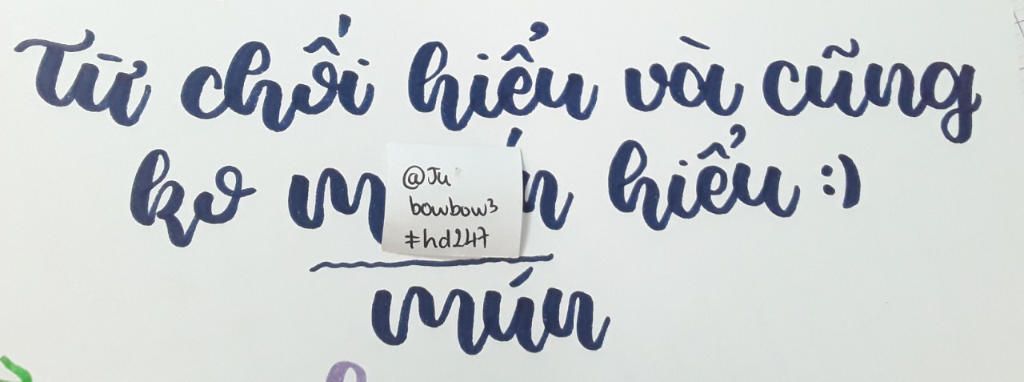 Từ chối hiểu và cũng
ko hiểu :)
@Ju
bowbow3
#hd247
mún